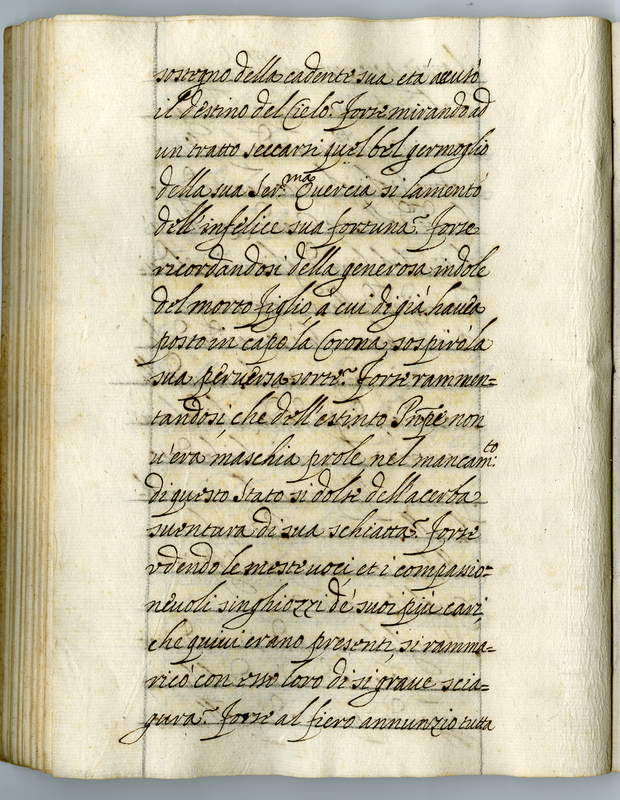 sostegno della cadente sua etá accusò
il destino del Cielo? Forse mirando ad
un tratto seccarsi quel bel germoglio
della sua Ser.ma Quercia, si lamentò
dell'infelice sua fortuna? Forse
ricordandosi della generosa indole
del morto figlio, à cui di giá haueua
posto in capo la Corona, sospirò la
sua peruersa sorte? Forse rammen=
tandosi, che dell'estinto Prñpe non
u'era maschia prole, nel mancam:to
di questo Stato si dolse dell'acerba
suentura di sua schiatta? Forse
vdendo le meste uoci, et i compassio=
neuoli singhiozzi de' suoi più cari,
che quiui erano presenti, si ramma=
ricò con esso loro di sì graue scia=
gura? Forse al fiero annunzio tutta